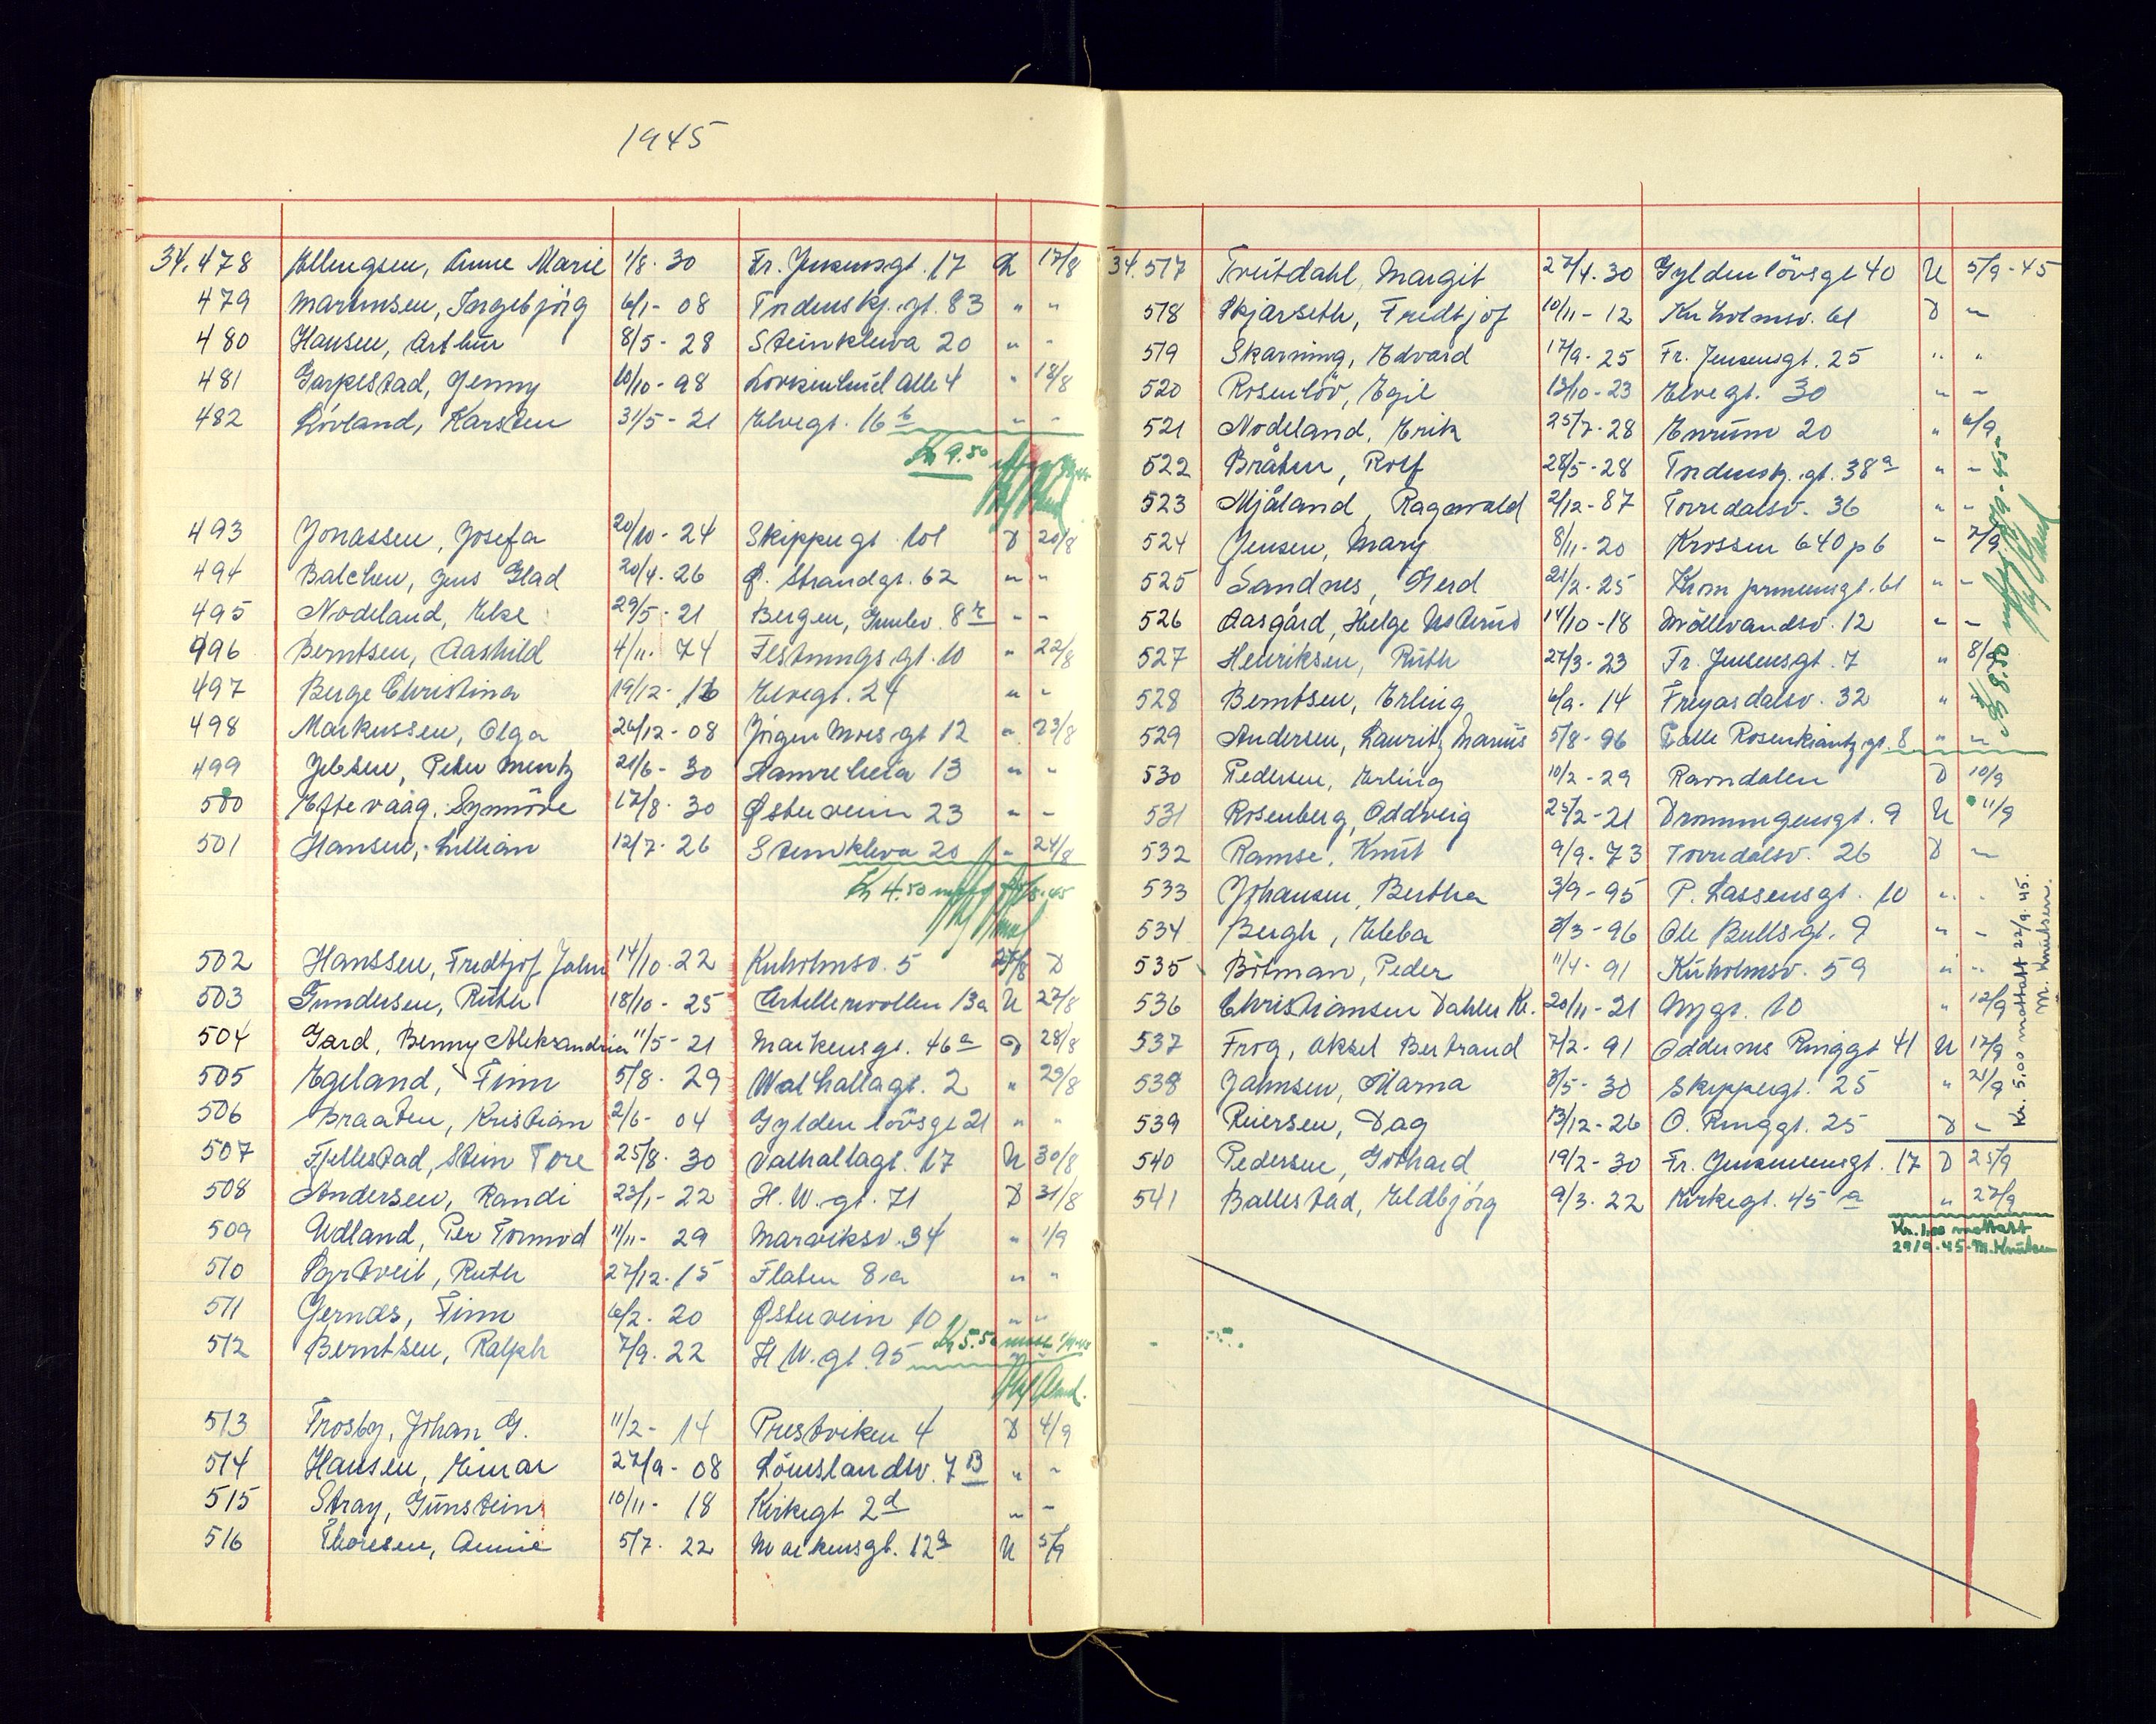 1945
34.478 Ellingsen, Anne Marie 1/8. 30 Fr. Jensensgt. 17 U 17/8
479 Martinsen, Ingebjörg 6/1- 08 Tordenskj. gt. 83 " "
480 Hansen, Arthur 8/5- 28 Steinkleiva 20 " "
481 Garpestad, Jenny 10/10- 98 Alle 4 " 18/8
482 Lövland, Karsten 31/5- 21 Elvegt. 16 b " "
Kr 9.50
493 Jonassen, Josefa 20/10- 24 Skippergt. 101 D 20/8
494 Balchen, Jens Glad 20/4. 26 Ø. Strandgt. 62 " "
495 Nodeland, Else 29/5- 21 Bergen, 8 " "
496 Berntsen, Aashild 4/11. 74 Festningsgt. 10 " 22/8
497 Berge Christina 19/12- 16 Elvegt. 24 " "
498 Markussen, Olga 26/12- 08 Jörgen Moes gt 12 " 23/8
499 Jebsen, Peter Mentz 21/6- 30 Hamreheia 13 " "
500 Eftevaag, Synnöve 17/8. 30 Østerveien 23 " "
501 Hansen, Lillian 12/7. 26 Steinkleiva 20 " 24/8
Kr 4.50
502 Hanssen, Fredtjof John 14/10. 22 Kuholmsv. 5 27/8 D
503 Gundersen, Ruth 18/10- 25 Artillerivollen 13a U 27/8
504 Gard, Benny Aleksandria 11/5- 21 Markensgt. 46 a D 28/8
505 Egeland, Finn 5/8. 29 Walhallagt. 2 " 29/8
506 Braaten, Kristian 2/6- 04 Gyldenlövsgt 21 " "
507 Fjellestad, Stein Tore 25/8. 30 Valhallagt. 17 U 30/8
508 Andersen, Randi 23/1- 22 H. W. gt. 71 D 31/8
509 Udland, Per Tormod 11/11- 29 Marviksv. 34 " 1/9
510 Ruth 27/12. 15 Flaten 8a " "
511 Jernæs, Finn 6/2. 20 Østerveien 10 " "
512 Berntsen, Ralph 7/9. 22 H. W. gt. 95 Kr 5.50
513 Frosby, Johan G. 11/2- 14 Prestviken 4 D 4/9
514 Hansen, Einar 27/9- 08 Lömslandsv. 7 B " "
515 Stray, Gunstein 10/11- 18 Kirkegt 2 d " "
516 Thoresen, Annie 5/7. 22 Markensgt. 12 a U 5/9
34.517 Treitdahl, Margit 27/4. 30 Gyldenlövsgt 40 U 5/9-45
518 Skjærseth, Fredtjof 10/11- 12 Kuholmsv. 61 D "
519 Skarning, Edvard 17/9. 25 Fr. Jensensgt. 25 " "
520 Rosenlöv, Egil 13/10- 23 Elvegt. 30 " "
521 Nodeland, Erik 25/7. 28 Enrum 20 " 6/9
522 Bråten, Rolf 28/5- 28 Tordensk. gt. 38 a " "
523 Mjåland, Ragnvald 2/12- 87 Torridalsv. 36 " "
524 Jensen, Mary 8/11. 20 Krossen 640 p 6 " 7/9
525 Sandnes, Gerd 21/2. 25 Kronprinsensgt. 61 " "
526 Aasgård, Helge 14/10-18 Möllevandsv. 12 " "
527 Henriksen, Ruth 27/3- 23 Fr. Jensensgt. 7 " 8/9
528 Berntsen, Erling 6/9. 14 Freyasdalsv. 32 "
529 Andersen, Lauritz Marius 5/8- 96 Palle Rosenkrantz gt. 8 " "
530 Pedersen, Erling 10/2- 29 Ravndalen D 10/9
531 Rosenberg, Oddveig 25/2-21 Dronningensgt. 9 U 11/9
532 Ramse, Knut 9/9. 73 Torridalsv. 26 D "
533 Johansen, Bertha 3/9- 95 P. Lassensgt. 10 " "
534 Bergh, Ebba 3/3- 96 Ole Bullsgt. 9 " "
535 Bitman, Peder 11/4- 91 Kuholmsv. 59 " "
536 Christiansen Dahler Kr. 20/11-21 Nygt. 10 " 12/9
537 Frog, Aksel Bertrand 7/2- 91 Oddernes Ringgt 41 U 17/9
538 Jahnsen, Marna 3/5- 30 Skippergt. 25 " 21/9
539 Reiersen, Dag 13/12-26 O. Ringgt. 25 D "
540 Pedersen, Gothard 19/2- 30 Fr. Jensensgt. 17 D 25/9
541 Ballestad, Eldbjörg 9/3. 22 Kirkegt. 45 a " 27/9
Kr. 1.00 mottatt
29/9-45- M. Knutsen
Kr. 5.00 mottatt 22/9. 45.
M. Knutsen.